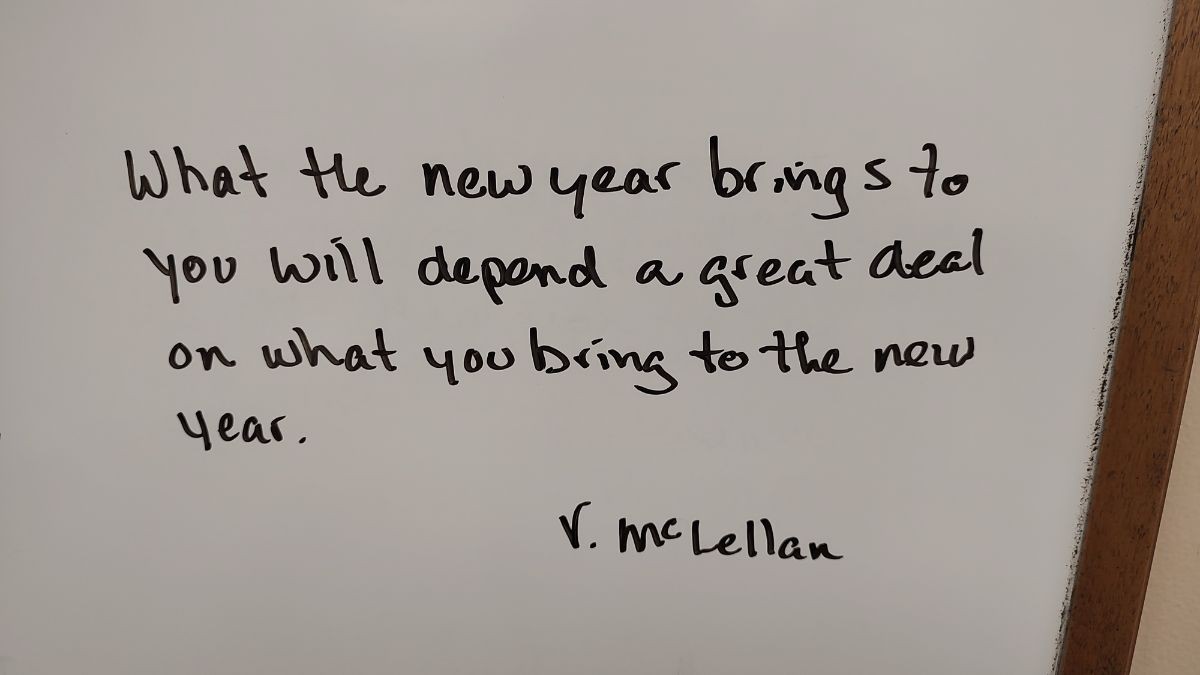 What the new year brings to
you will depend a great deal
on what you bring to the new
year.
V. McLellan